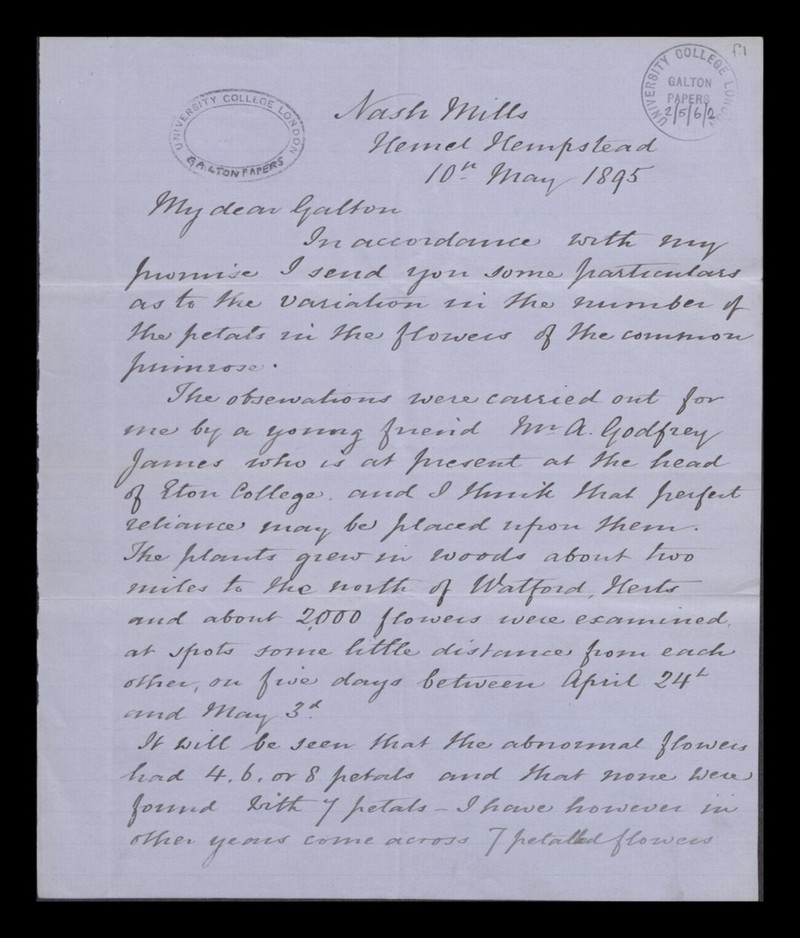 f1
UNIVERSITY COLLEGE LONDON
GALTON PAPERS
2/5/6/2
UNIVERSITY COLLEGE LONDON
GALTON PAPERS
Nash Mills
Hemel Hempstead
10th May 1895
My dear Galton
In accordance with my
promise I send you some particulars
as to the variation in the number of
the petals in the flowers of the common
primrose.
The observations were carried out for
me by a young friend Mr A. Godfrey
James who is at present at the head
of Eton College. and I think that perfect
reliance may be placed upon them.
The plants grew in woods about two
miles to the north of Watford, Herts
and about 2,000 flowers were examined,
at spots some little distance from each
other, on five days between April 24th
and May 3d.
It will be seen that the abnormal flowers
had 4, 6, or 8 petals and that none were
found with 7 petals - I have however in
other years come across 7 petalled flowers